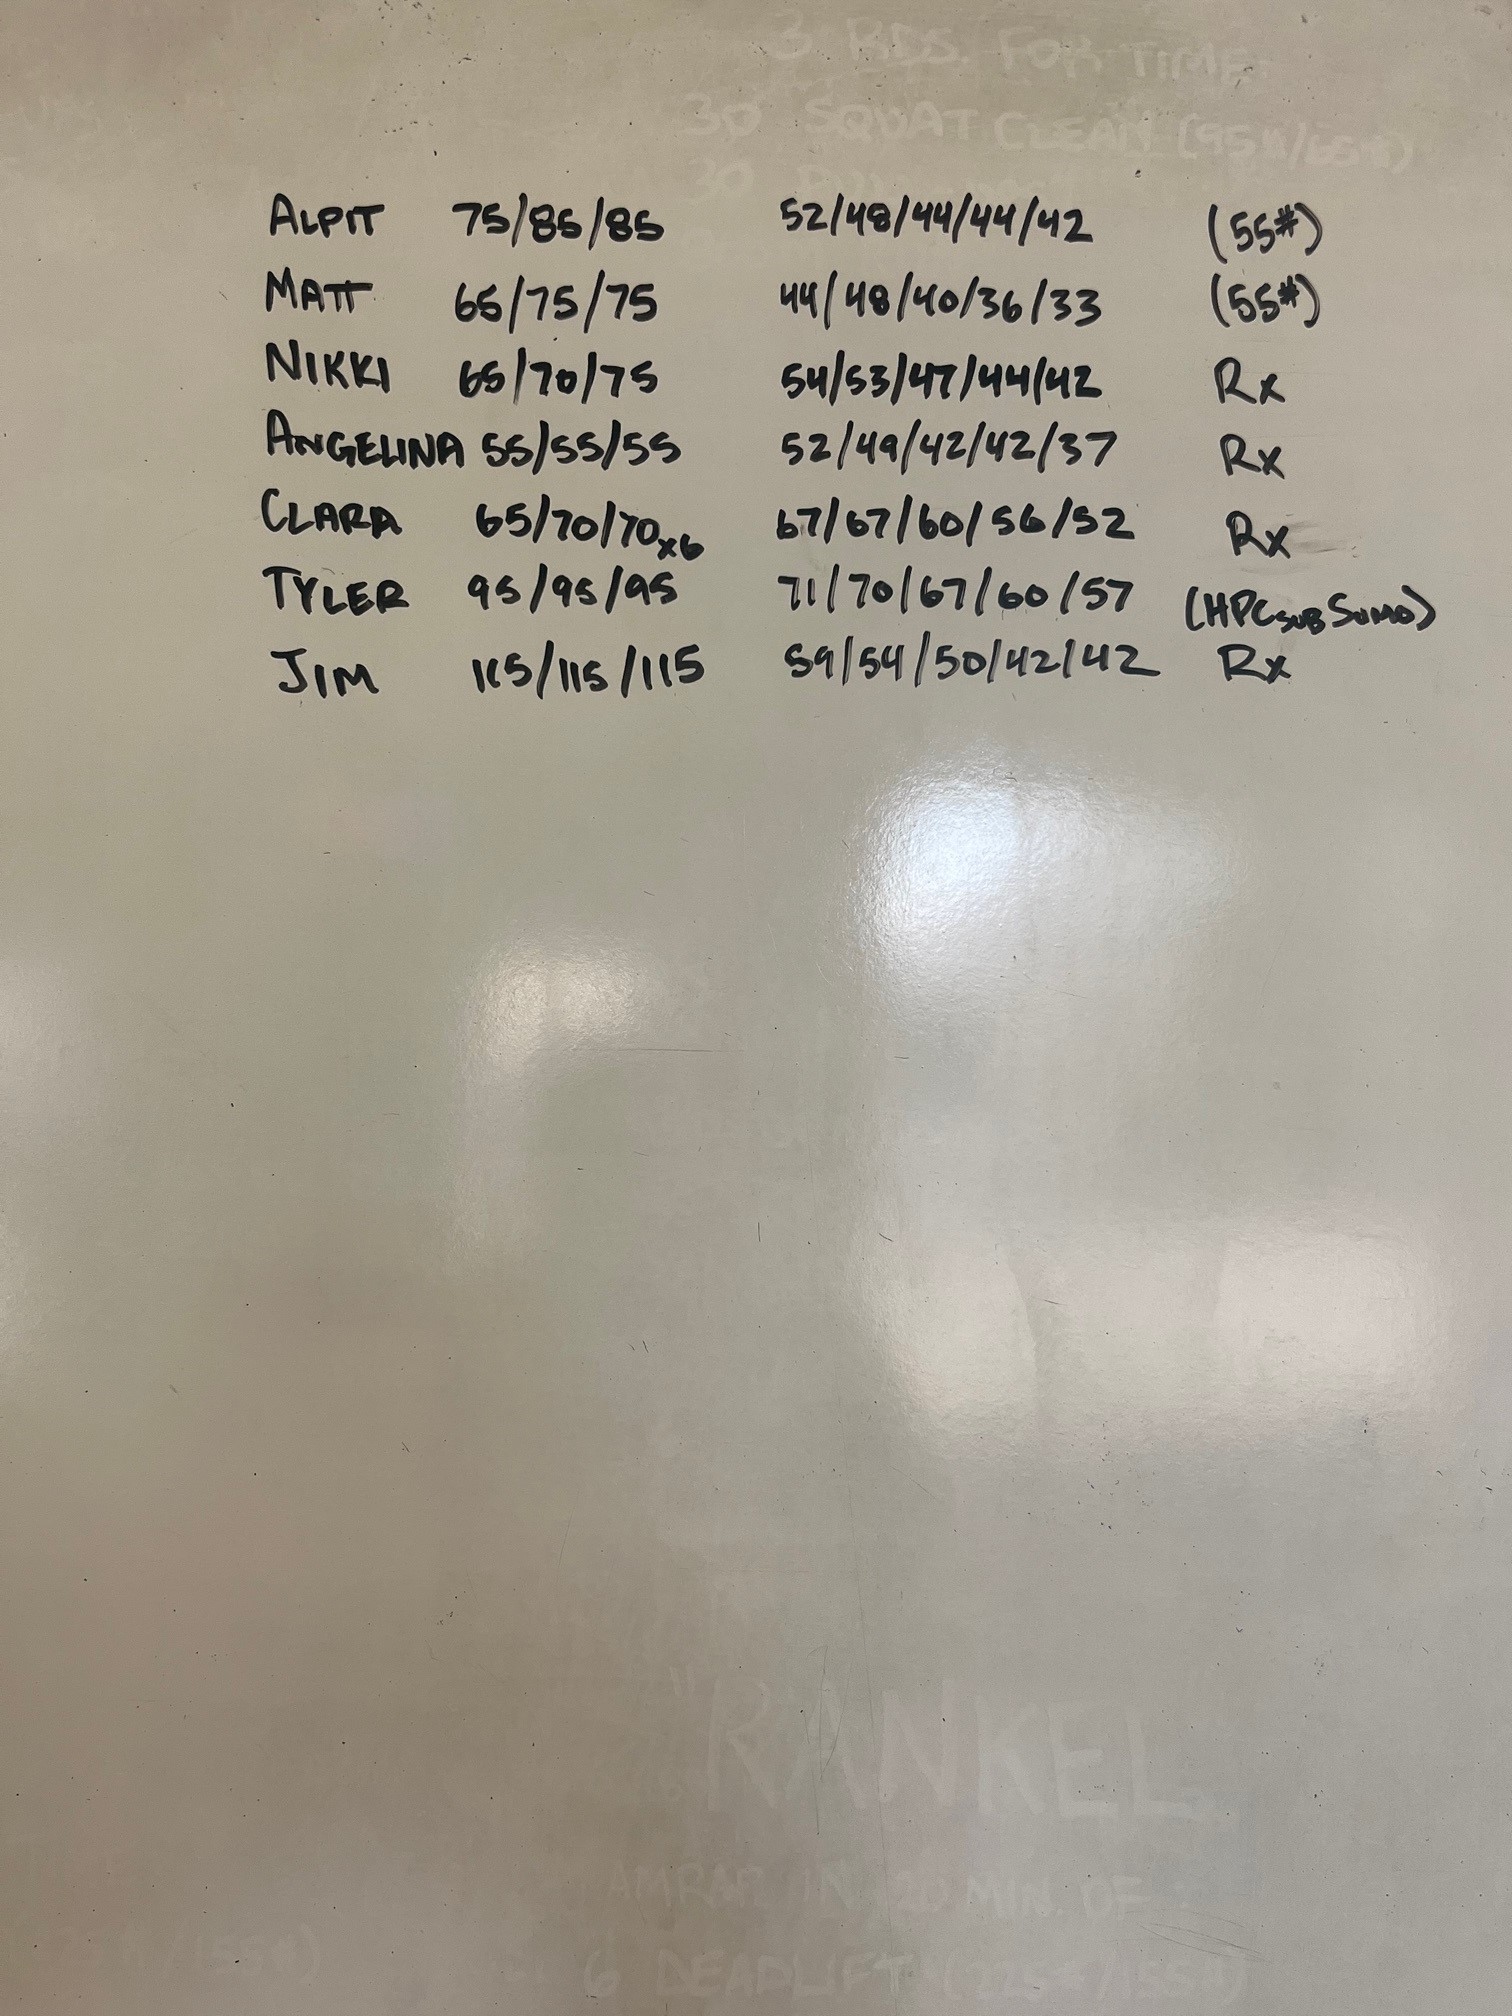 3 RDS. FOR TIME:
30 SQUAT CLEAN (95#/65#)
30
ALPIT 75/85/85 52/48/44/44/42 (55#)
MATT 65/75/75 44/48/40/36/33 (55#)
NIKKI 65/70/75 54/53/47/44/42 Rx
ANGELINA 55/55/55 52/49/42/42/37 Rx
CLARA 65/70/70x6 67/67/60/56/52 Rx
TYLER 95/95/95 71/70/67/60/57 (HPC SUB SUMO)
JIM 115/115/115 59/54/50/42/42 Rx
"RANKEL"
AMRAP IN 20 MIN. OF:
6 DEADLIFT (225#/155#)